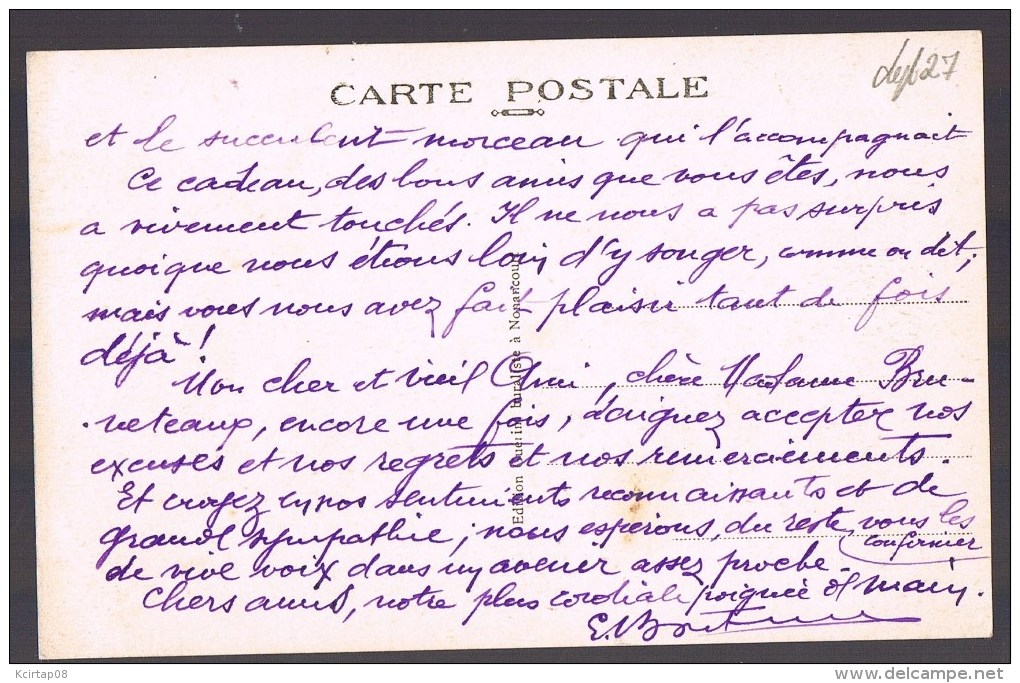 dept 27
CARTE POSTALE
et le succulent morceau qui l'accompagnait
Ce cadeau, des bons amis que vous êtes, nous
a vivement touchés. Il ne nous a pas surpris
quoique nous étions loin d'y songer, comme on dit,
mais vous nous avez fait plaisir tant de fois
déjà !
Mon cher et vieil Ami, chère Madame Bru-
neteaux, encore une fois, daignez accepter nos
excuses et nos regrets et nos remerciements.
Et croyez en nos sentiments reconnaissants et de
grande sympathie ; nous espérons, du reste, vous les
confirmer
de vive voix dans un avenir assez proche.
Chers amis, notre plus cordiale poignée de main.
Edition buraliste à Nonancourt
Kcirtap08
delcampe.net